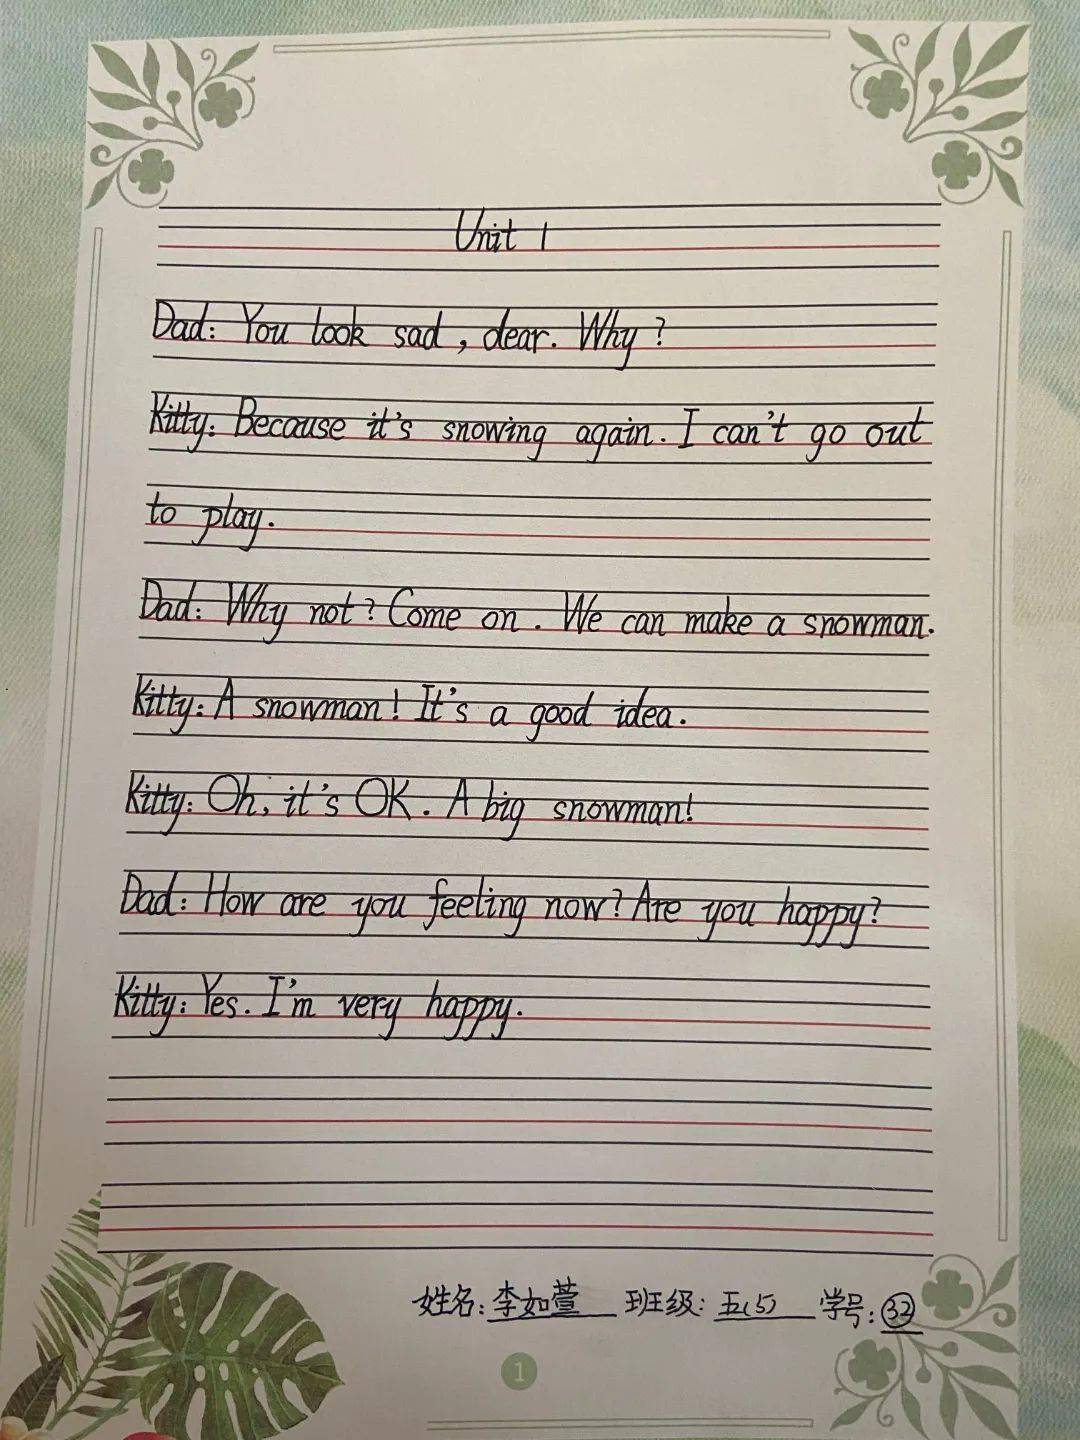 Unit 1
Dad: You look sad, dear. Why?
Kitty: Because it's snowing again. I can't go out
to play.
Dad: Why not? Come on. We can make a snowman.
Kitty: A snowman! It's a good idea.
Kitty: Oh, it's OK. A big snowman!
Dad: How are you feeling now? Are you happy?
Kitty: Yes. I'm very happy.
姓名: 李如萱 班级: 五(5) 学号: 32
1